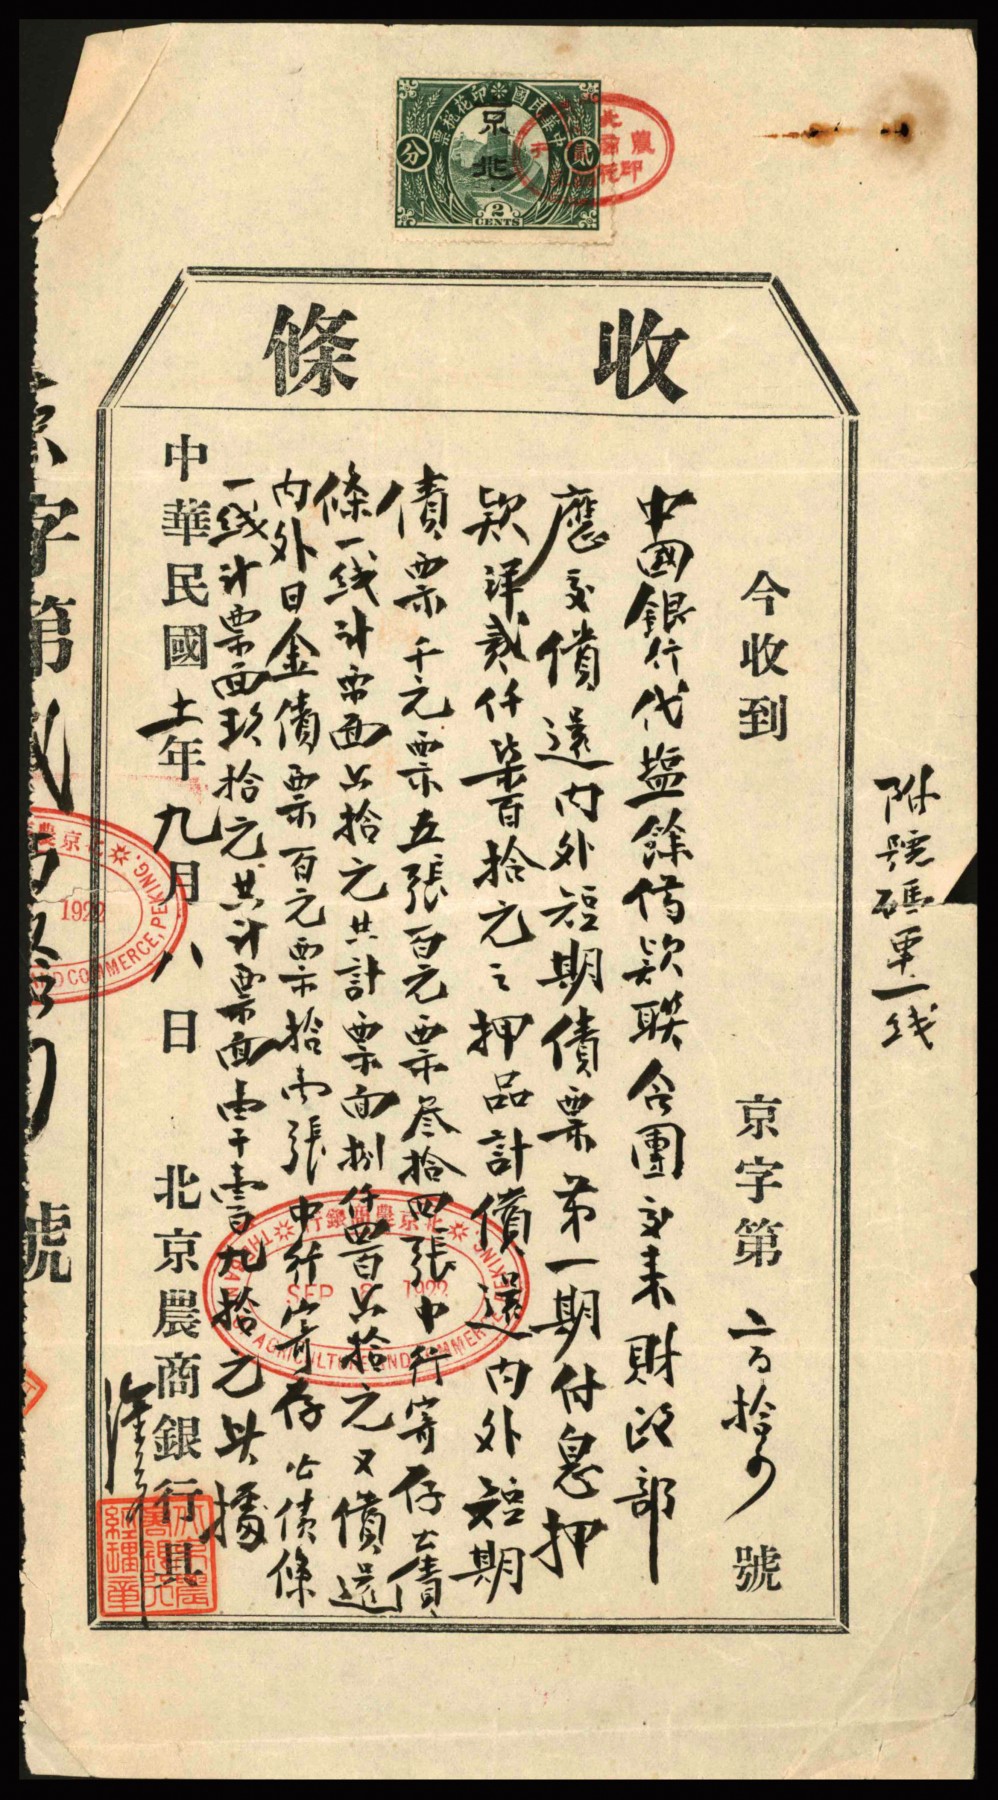 中華民國印花稅票
京北
貳
分
2
CENTS
收條
附號碼單一线
今收到
京字第 拾 號
中國銀行代塩餘借款聯合團交来財政部
應交償還内外短期債票第一期付息押
款洋貳仟柒百拾元之押品計償還内外短期
債票千元票五張百元票叁拾四張中行寄存公債
條一线計票面公拾元共計票面捌仟四百公拾元又償還
内外日金債票百元票拾壹張中行寄存公債條
一线计票面玖拾元共计票面壹千壹百九拾元此據
中華民國十一年九月八日 北京農商銀行具
北京農商銀行
SEP 8 1922
AGRICULTURE AND COMMERCE, PEKING
京字第 號
1922
AND COMMERCE, PEKING.